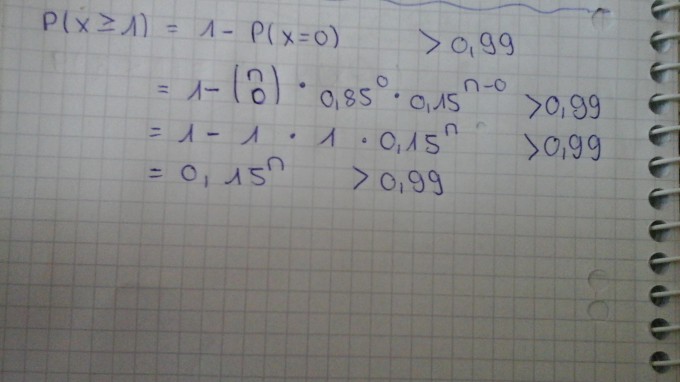 P(X ≥ 1) = 1 - P(X=0) > 0,99
= 1 - (n 0) · 0,85^0 · 0,15^n-0 > 0,99
= 1 - 1 · 1 · 0,15^n > 0,99
= 0,15^n > 0,99